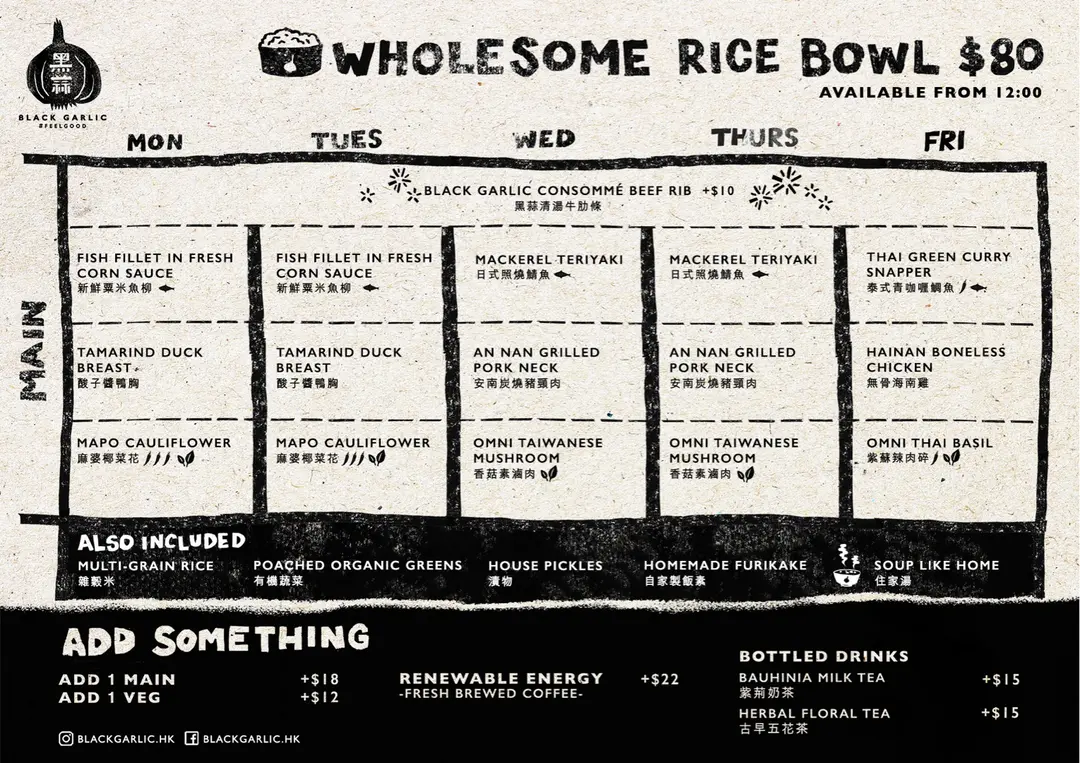 黑蒜
BLACK GARLIC
#FEELGOOD
WHOLESOME RICE BOWL $80
AVAILABLE FROM 12:00
MON TUES WED THURS FRI
BLACK GARLIC CONSOMMÉ BEEF RIB +$10
黑蒜清湯牛肋條
MAIN
FISH FILLET IN FRESH
CORN SAUCE
新鮮粟米魚柳
FISH FILLET IN FRESH
CORN SAUCE
新鮮粟米魚柳
MACKEREL TERIYAKI
日式照燒鯖魚
MACKEREL TERIYAKI
日式照燒鯖魚
THAI GREEN CURRY
SNAPPER
泰式青咖喱鯛魚
TAMARIND DUCK
BREAST
酸子醬鴨胸
TAMARIND DUCK
BREAST
酸子醬鴨胸
AN NAN GRILLED
PORK NECK
安南炭燒豬頸肉
AN NAN GRILLED
PORK NECK
安南炭燒豬頸肉
HAINAN BONELESS
CHICKEN
無骨海南雞
MAPO CAULIFLOWER
麻婆椰菜花
MAPO CAULIFLOWER
麻婆椰菜花
OMNI TAIWANESE
MUSHROOM
香菇素滷肉
OMNI TAIWANESE
MUSHROOM
香菇素滷肉
OMNI THAI BASIL
紫蘇辣肉碎
ALSO INCLUDED
MULTI-GRAIN RICE
雜穀米
POACHED ORGANIC GREENS
有機蔬菜
HOUSE PICKLES
漬物
HOMEMADE FURIKAKE
自家製飯素
SOUP LIKE HOME
住家湯
ADD SOMETHING
ADD 1 MAIN +$18
ADD 1 VEG +$12
RENEWABLE ENERGY +$22
-FRESH BREWED COFFEE-
BOTTLED DRINKS
BAUHINIA MILK TEA +$15
紫荊奶茶
HERBAL FLORAL TEA +$15
古早五花茶
BLACKGARLIC.HK BLACKGARLIC.HK